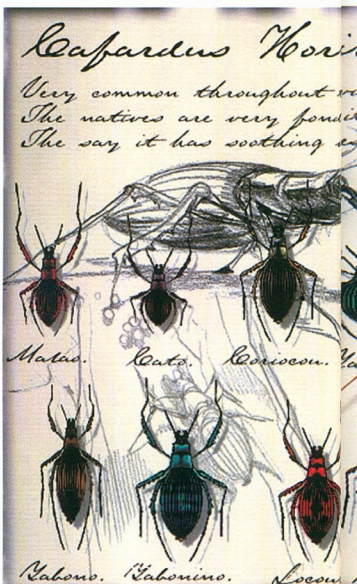 Cafardus Hori
Very common throughout
The natives are very fond
The say it has soothing
Matao. Cato. Coriocou.
Zabono. Zabonino. Locou